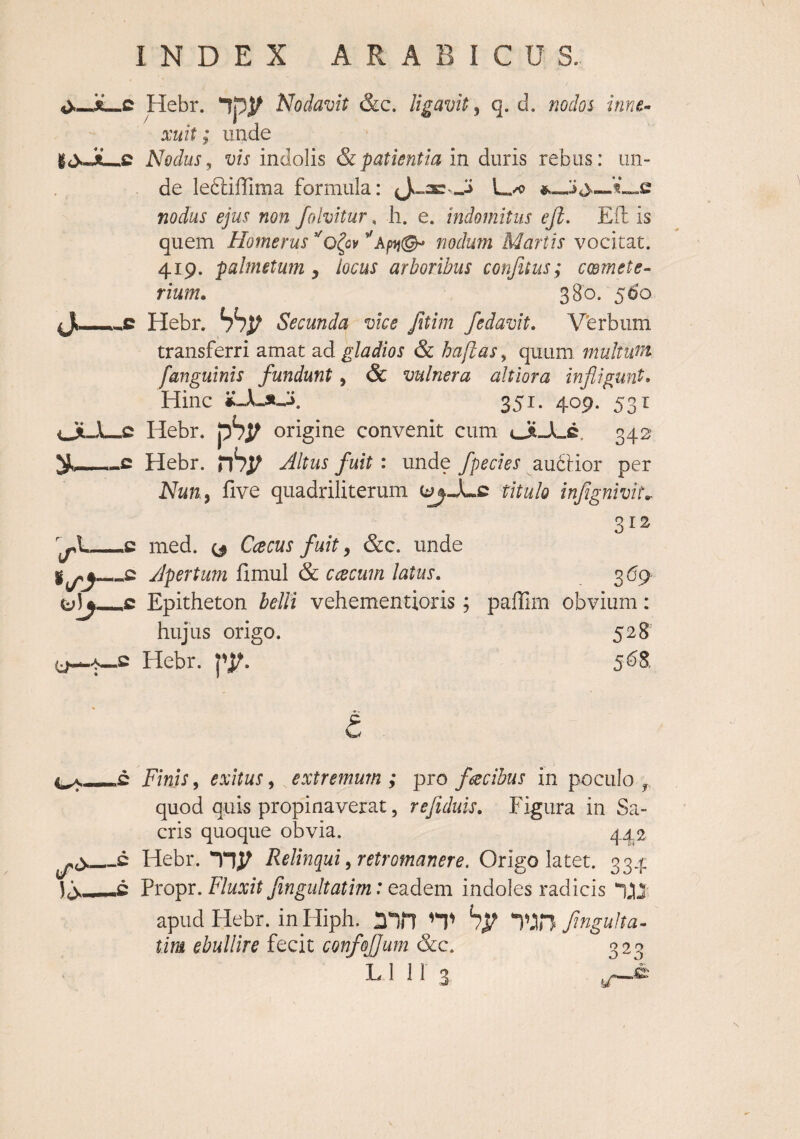 INDEX ARABICUS.
عقد Hebr. עקד Nodavit &c. ligavit, q. d. nodos inne-
xuit; unde
عقدة Nodus, vis indolis & patientia in duris rebus: un-
de lectissima formula: ما نحل عقدته
nodus ejus non solvitur, h. e. indomitus est. Est is
quem Homerus Ὄζον Ἄρη@ nodum Martis vocitat.
419. palmetum, locus arboribus consitus; cœmete-
rium. 380. 560
عل Hebr. עלל Secunda vice sitim sedavit. Verbum
transferri amat ad gladios & hastas, quum multum
sanguinis fundunt, & vulnera altiora infligunt.
Hinc 351. 409. 531
علق Hebr. עלק origine convenit cum غلق. 342
علا Hebr. עלה Altus fuit: unde species auctior per
Nun, sive quadriliterum علون titulo insignivit.
312
عار med. ى Cæcus fuit, &c. unde
Apertum simul & cæcum latus. 369
عوان Epitheton belli vehementioris; passim obvium:
hujus origo. 528
عين Hebr. עין. 568
غ
غب Finis, exitus, extremum; pro fæcibus in poculo,
quod quis propinaverat, residuis. Figura in Sa-
cris quoque obvia. 442
غدر Hebr. עדר Relinqui, retromanere. Origo latet. 334
غذا Propr. Fluxit singultatim: eadem indoles radicis נגר
apud Hebr. in Hiph. הגיר על ידי חרב singulta-
tim ebullire fecit confossum &c. 323
Ll ll 3